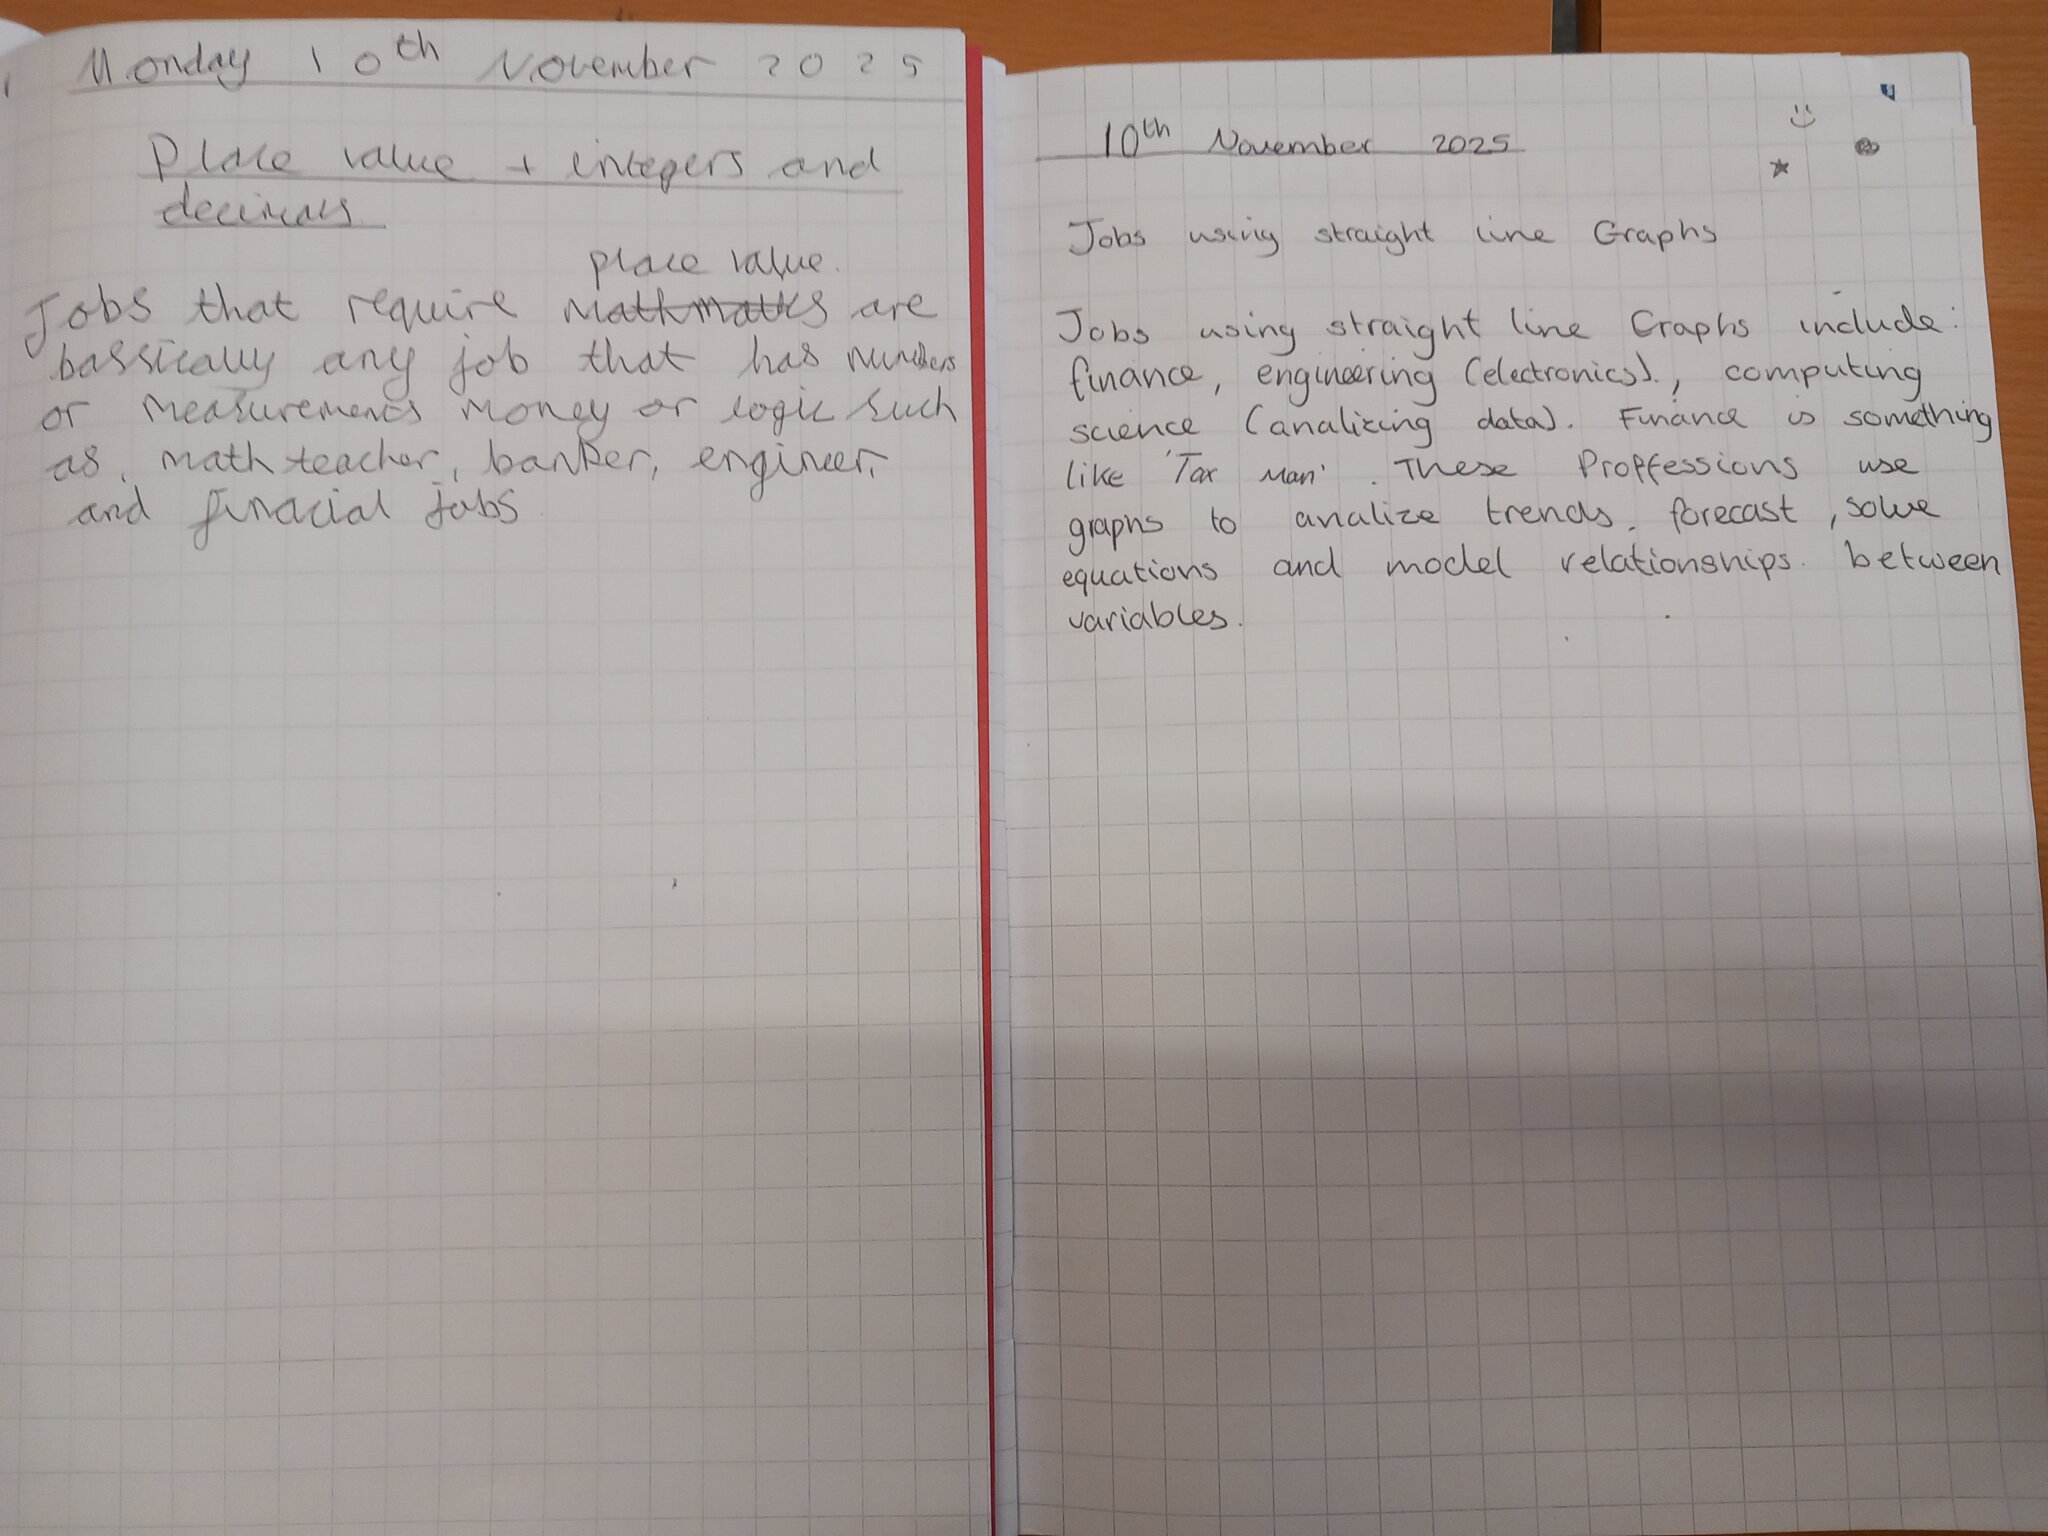 Monday 10th November 2025
Place value + integers and
decimals
place value.
Jobs that require mathmatics are
bassically any job that has numbers
or measurements money or logic such
as, math teacher, banker, engineer,
and finacial jobs
10th November 2025
Jobs using straight line Graphs
Jobs using straight line Graphs include:
finance, engineering (electronics)., computing
science (analizing data). Finance is something
like 'Tax Man'. These Propfessions use
graphs to analize trends, forecast, solve
equations and model relationships. between
variables.